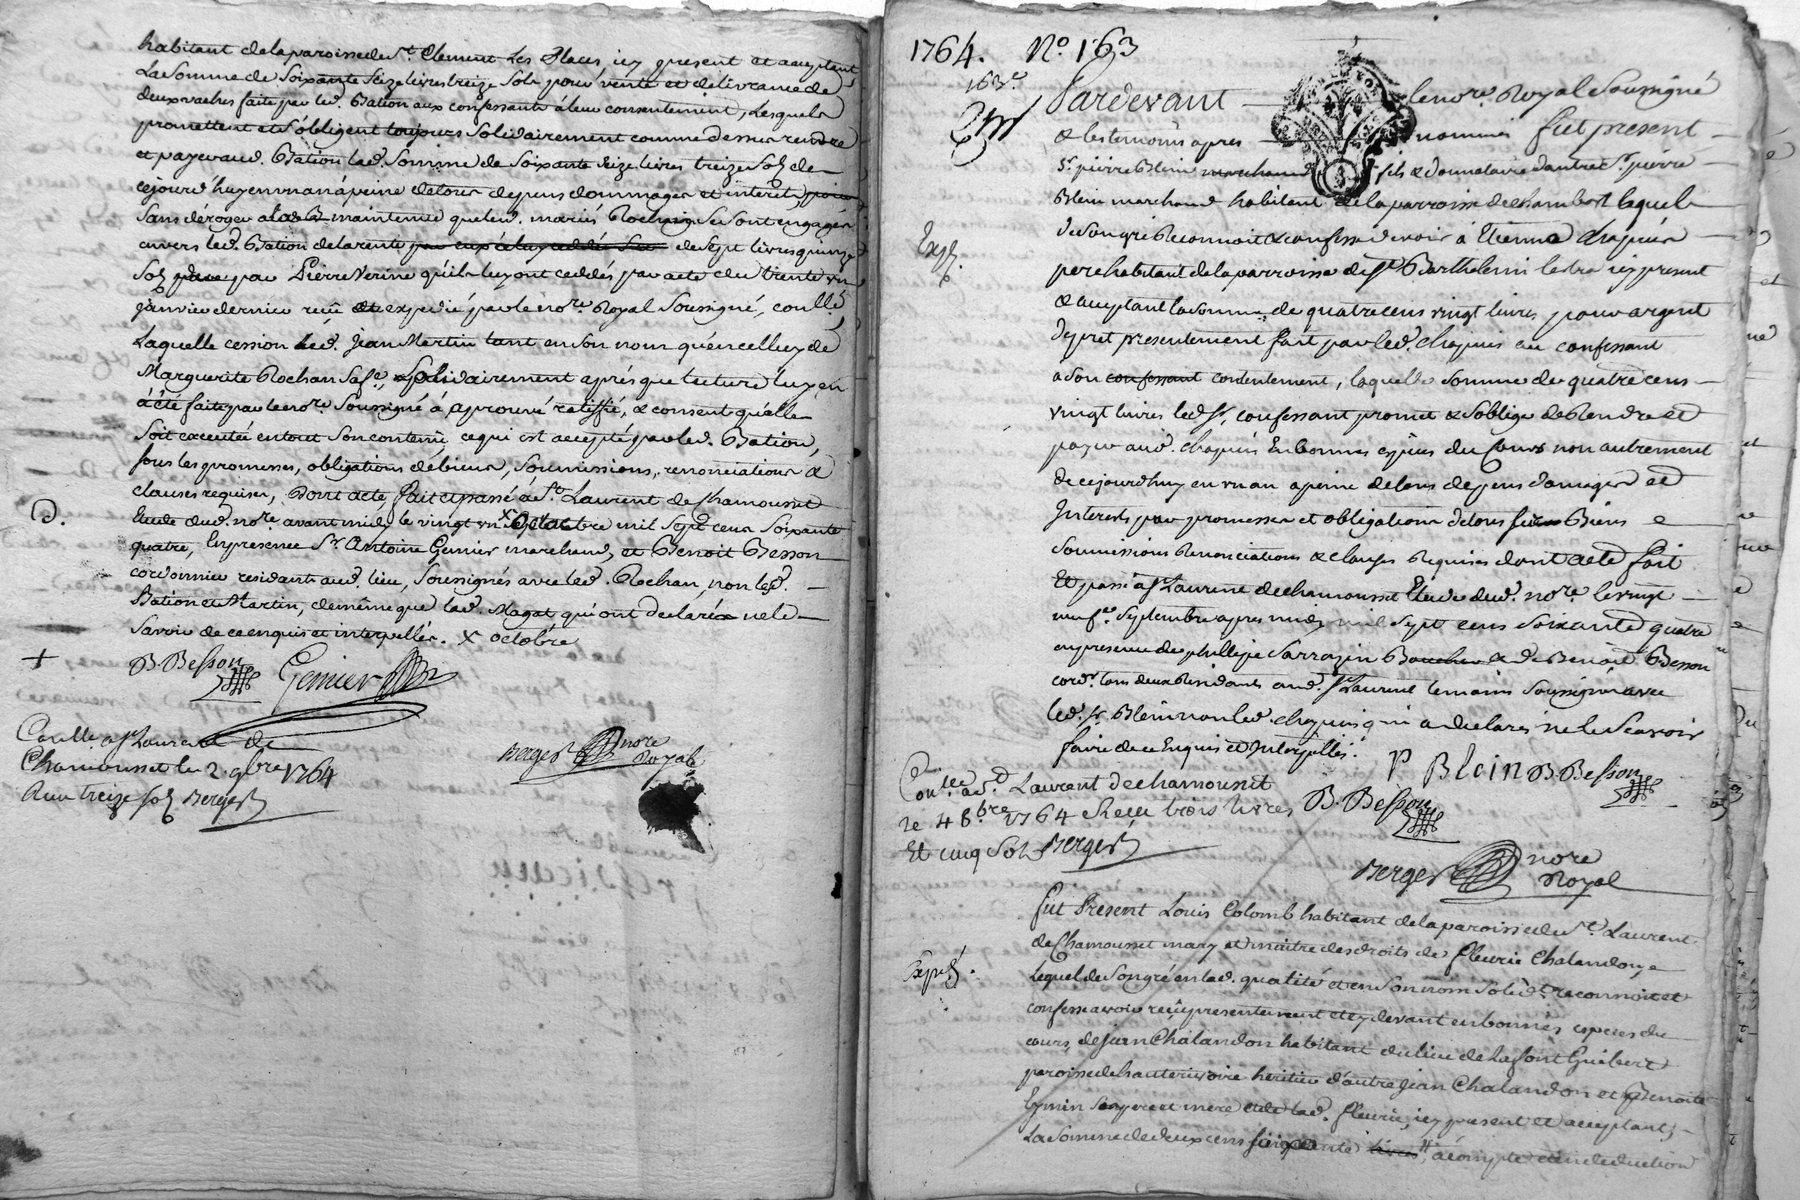 habitant de la paroisse de St. Clement Les Places, icy present et acceptant
La Somme de Soixante seize livres treize Sols pour vente et delivrance de
deux vaches faite par led. Bation aux confessants à leur consentement, Lesquels
promettent et s'obligent toujours Solidairement comme dessus rendre
et payer aud. Bation lad. Somme de Soixante seize livres treize Sols de
cejourd'huy en un an à peine de tous depens dommages et interets,
Sans déroger maintenue que led. mariés Rochan se sont engagés
envers led. Bation de la rente de Sept livres quinze
Sols par Pierre Verine qu'ils luy ont ceddés par acte du trente un
janvier dernier reçu et expedié par le nore. Royal Soussigné, conllé,
Laquelle cession led. Jean Martin tant en son nom qu'en celluy de
Marguerite Rochan Sa fe., Solidairement aprés que lecture luy en
à été faite par le nore. Soussigné à aprouvé ratiffié, & consent qu'elle
Soit executée en tout Son contenu, ce qui est accepté par led. Bation,
sous les promesses, obligations de biens, Soumissions, renonciations &
clauses requises, Dont acte, fait et passé à St. Laurent de Chamousset
D. Etude dud. nore. avant midy le vingt un x octobre mil Sept cens Soixante
quatre, En presence Sr. Antoine Genier marchand, et Benoit Besson
cordonnier residants aud. lieu, Soussignés avec led. Rochan, non led.
Bation et Martin, de même que lad. Magat qui ont declaré ne le
Savoir de ce enquis et interpellés. x octobre
+ B. Besson Genier
Conllé. a St Laurent de
Chamousset le 2. 9bre 1764
Reçu treize sols Berger
Berger nore Royal
1764. No. 163
163e.
Pardevant le nore. Royal Soussigné
& les temoins apres nommés fut present
Sr. pierre Blein marchand fils & donnataire d'autre Sr. pierre
Blein marchand habitant de la parroisse de chambost lequel
Exp. de Son gré Reconnoit & confesse devoir à Etienne chapuis
pere habitant de la parroisse de St. Barthelemi lestra icy present
& acceptant la somme de quatre cens vingt livres pour argent
de pret presentement fait par led. chapuis au confessant
a son confessant contentement, laquelle somme de quatre cens
vingt livres led. Sr. confessant promet & s'oblige de Rendre et
payer aud. chapuis En bonnes espèces du Cours non autrement
de cejourdhuy en un an a peine de tous depens domages et
Interests par promesses et obligations de tous ses Biens
Soumissions Renonciations & clauses Requises dont acte fait
Et passé a St Laurent de chamousset Etude dud. nore. le vingt
neufe. Septembre apres midy mil Sept cens soixante quatre
en presence de phillipe Sarrazin Boucher & de Benoit Besson
cordr. tous deux Residants aud. St Laurent temoins Soussignés avec
led. Sr. Blein non led. chapuis qui a declaré ne le Scavoir
faire de ce Enquis et Interpellé.
P Blein B. Besson
Conllé. a St. Laurent de chamousset
le 4 8bre. 1764 Reçu trois livres B. Besson
Et cinq Sols Berger
Berger nore Royal
fut Present Louis Colomb habitant de la paroisse de St. Laurent
de Chamousset mary et maitre des droits de fleurie Chalandon,
Expé. Lequel de Son gré en lad. qualité et en Son nom Solidt. reconnoit et
confesse avoir reçu presentement et cy devant en bonnes especes du
cours, de Jean Chalandon habitant du lieu de La font Guibert
paroisse de hauterivoire heritier d'autre Jean Chalandon et Benoite
Eymin Ses pere et mere et de lad. fleurie, icy present et acceptant,
La Somme de deux cens soixante livres, à compte et en deduction